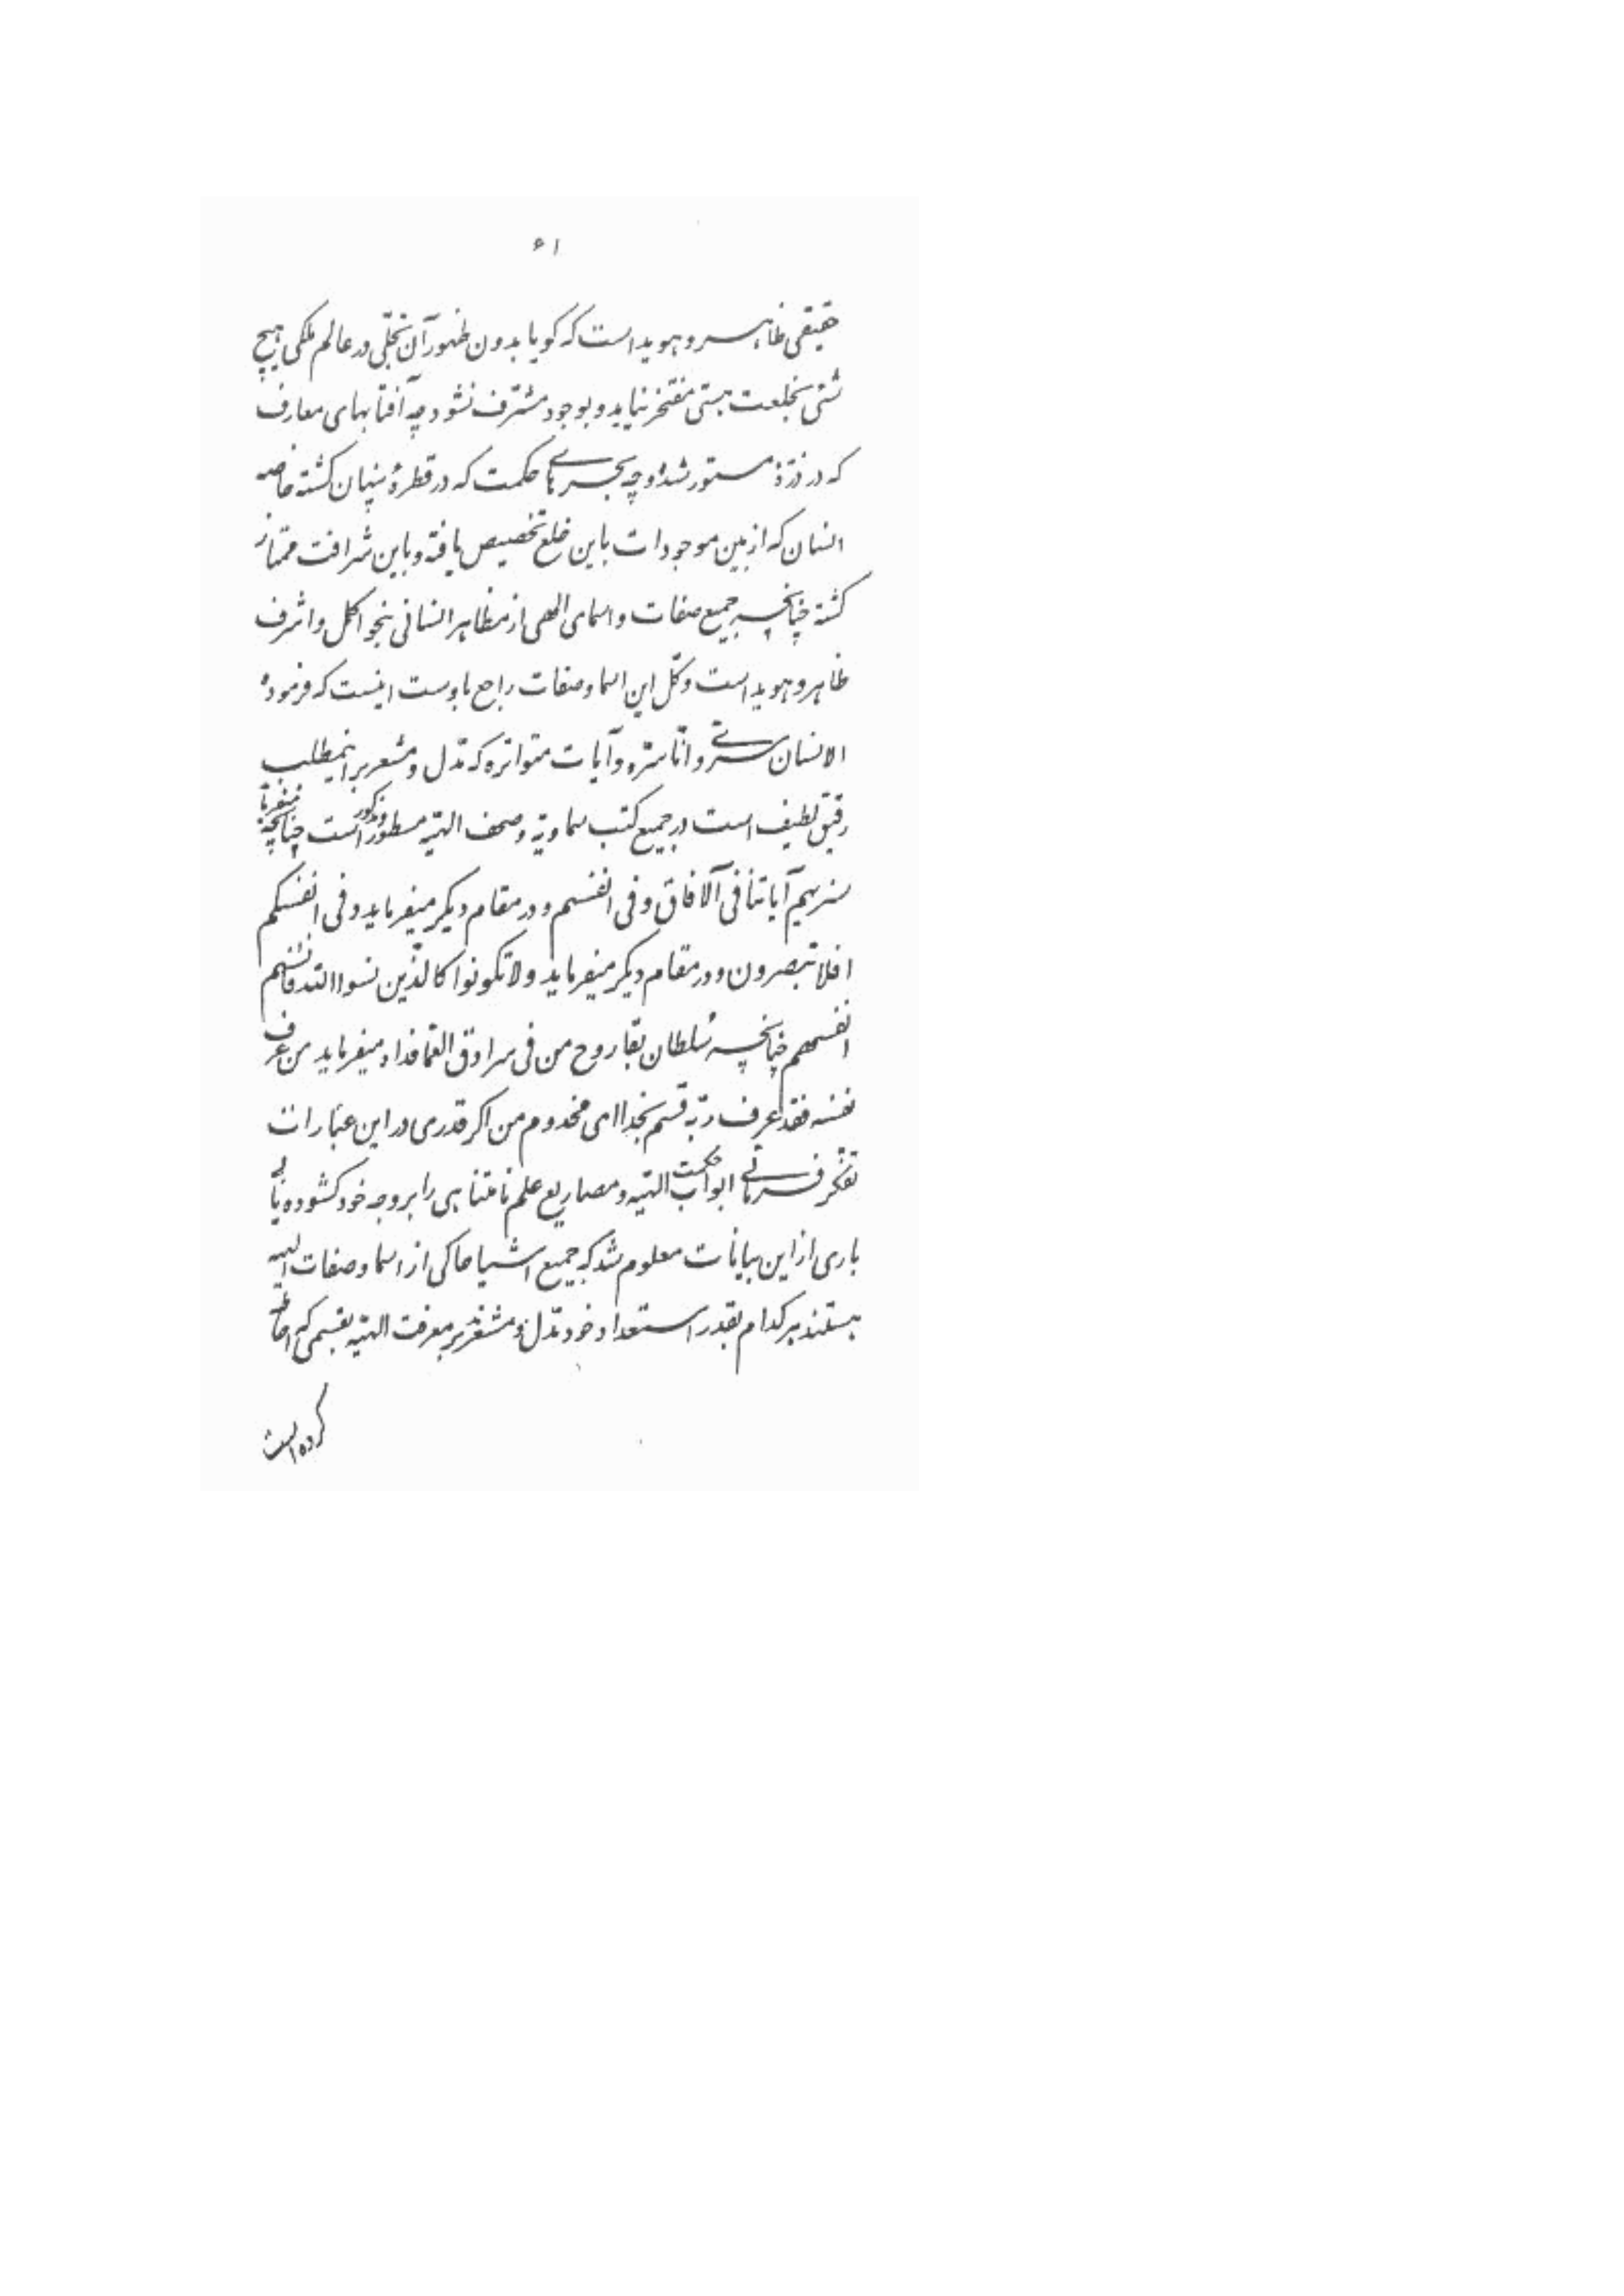 ۶۱
حقیقی ظاهر و هویداست که کویا بدون ظهور آن تجلّی در عالم ملکی هیچ
شئی بخلعت هستی مفتخر نیاید و بوجود مشرّف نشود چه آفتابهای معارف
که در ذرّهٔ مستور شده و چه بحرهای حکمت که در قطرهٔ پنهان کشته خاصه
انسان که از بین موجودات باین خلع تخصیص یافته و باین شرافت ممتاز
کشته چنانچه جمیع صفات و اسمای الهی از مظاهر انسانی بنحو اکمل و اشرف
ظاهر و هویداست و کلّ این اسما و صفات راجع باوست اینست که فرموده
الانسان سرّی و انا سرّه و آیات متواتره که مدلّ و مشعر بر اینمطلب
رقیق لطیف است در جمیع کتب سماویّه و صحف الهیّه مسطور و مذکور است چنانچه میفرماید
سنریهم آیاتنا فی الآفاق و فی انفسهم و در مقام دیکر میفرماید و فی انفسکم
افلا تبصرون و در مقام دیکر میفرماید و لا تکونوا کالّذین نسوا اللّه فانسٰهم
انفسهم چنانچه سُلطان بقا روح من فی سرادق العما فداه میفرماید من عرف
نفسه فقد عرف ربّه قسم بخدا ای مخدوم من اکر قدری در این عبارات
تفکّر فرمائی ابواب حکمت الهیّه و مصاریع علم نامتناهی را بر وجه خود کشوده یابی
باری از این بیانات معلوم شد که جمیع اشیا حاکی از اسما و صفات الهیّه
هستند هر کدام بقدر استعداد خود مدلّ و مشعرند بر معرفت الهیّه بقسمی که احاطه
کرده است